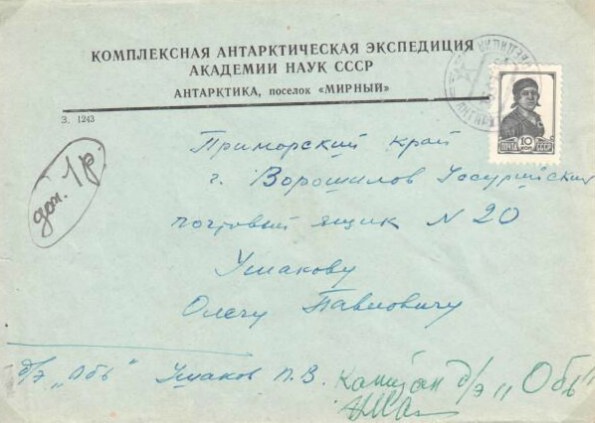 КОМПЛЕКСНАЯ АНТАРКТИЧЕСКАЯ ЭКСПЕДИЦИЯ
АКАДЕМИИ НАУК СССР
АНТАРКТИКА, поселок «МИРНЫЙ»
З. 1243
ПОЧТА 10 СССР
доп. 1р.
Приморский край
г. Ворошилов Уссурийский
почтовый ящик N 20
Ушакову
Олегу Павловичу
д/э „Обь" Ушаков П.В.
Капитан д/э „Обь"